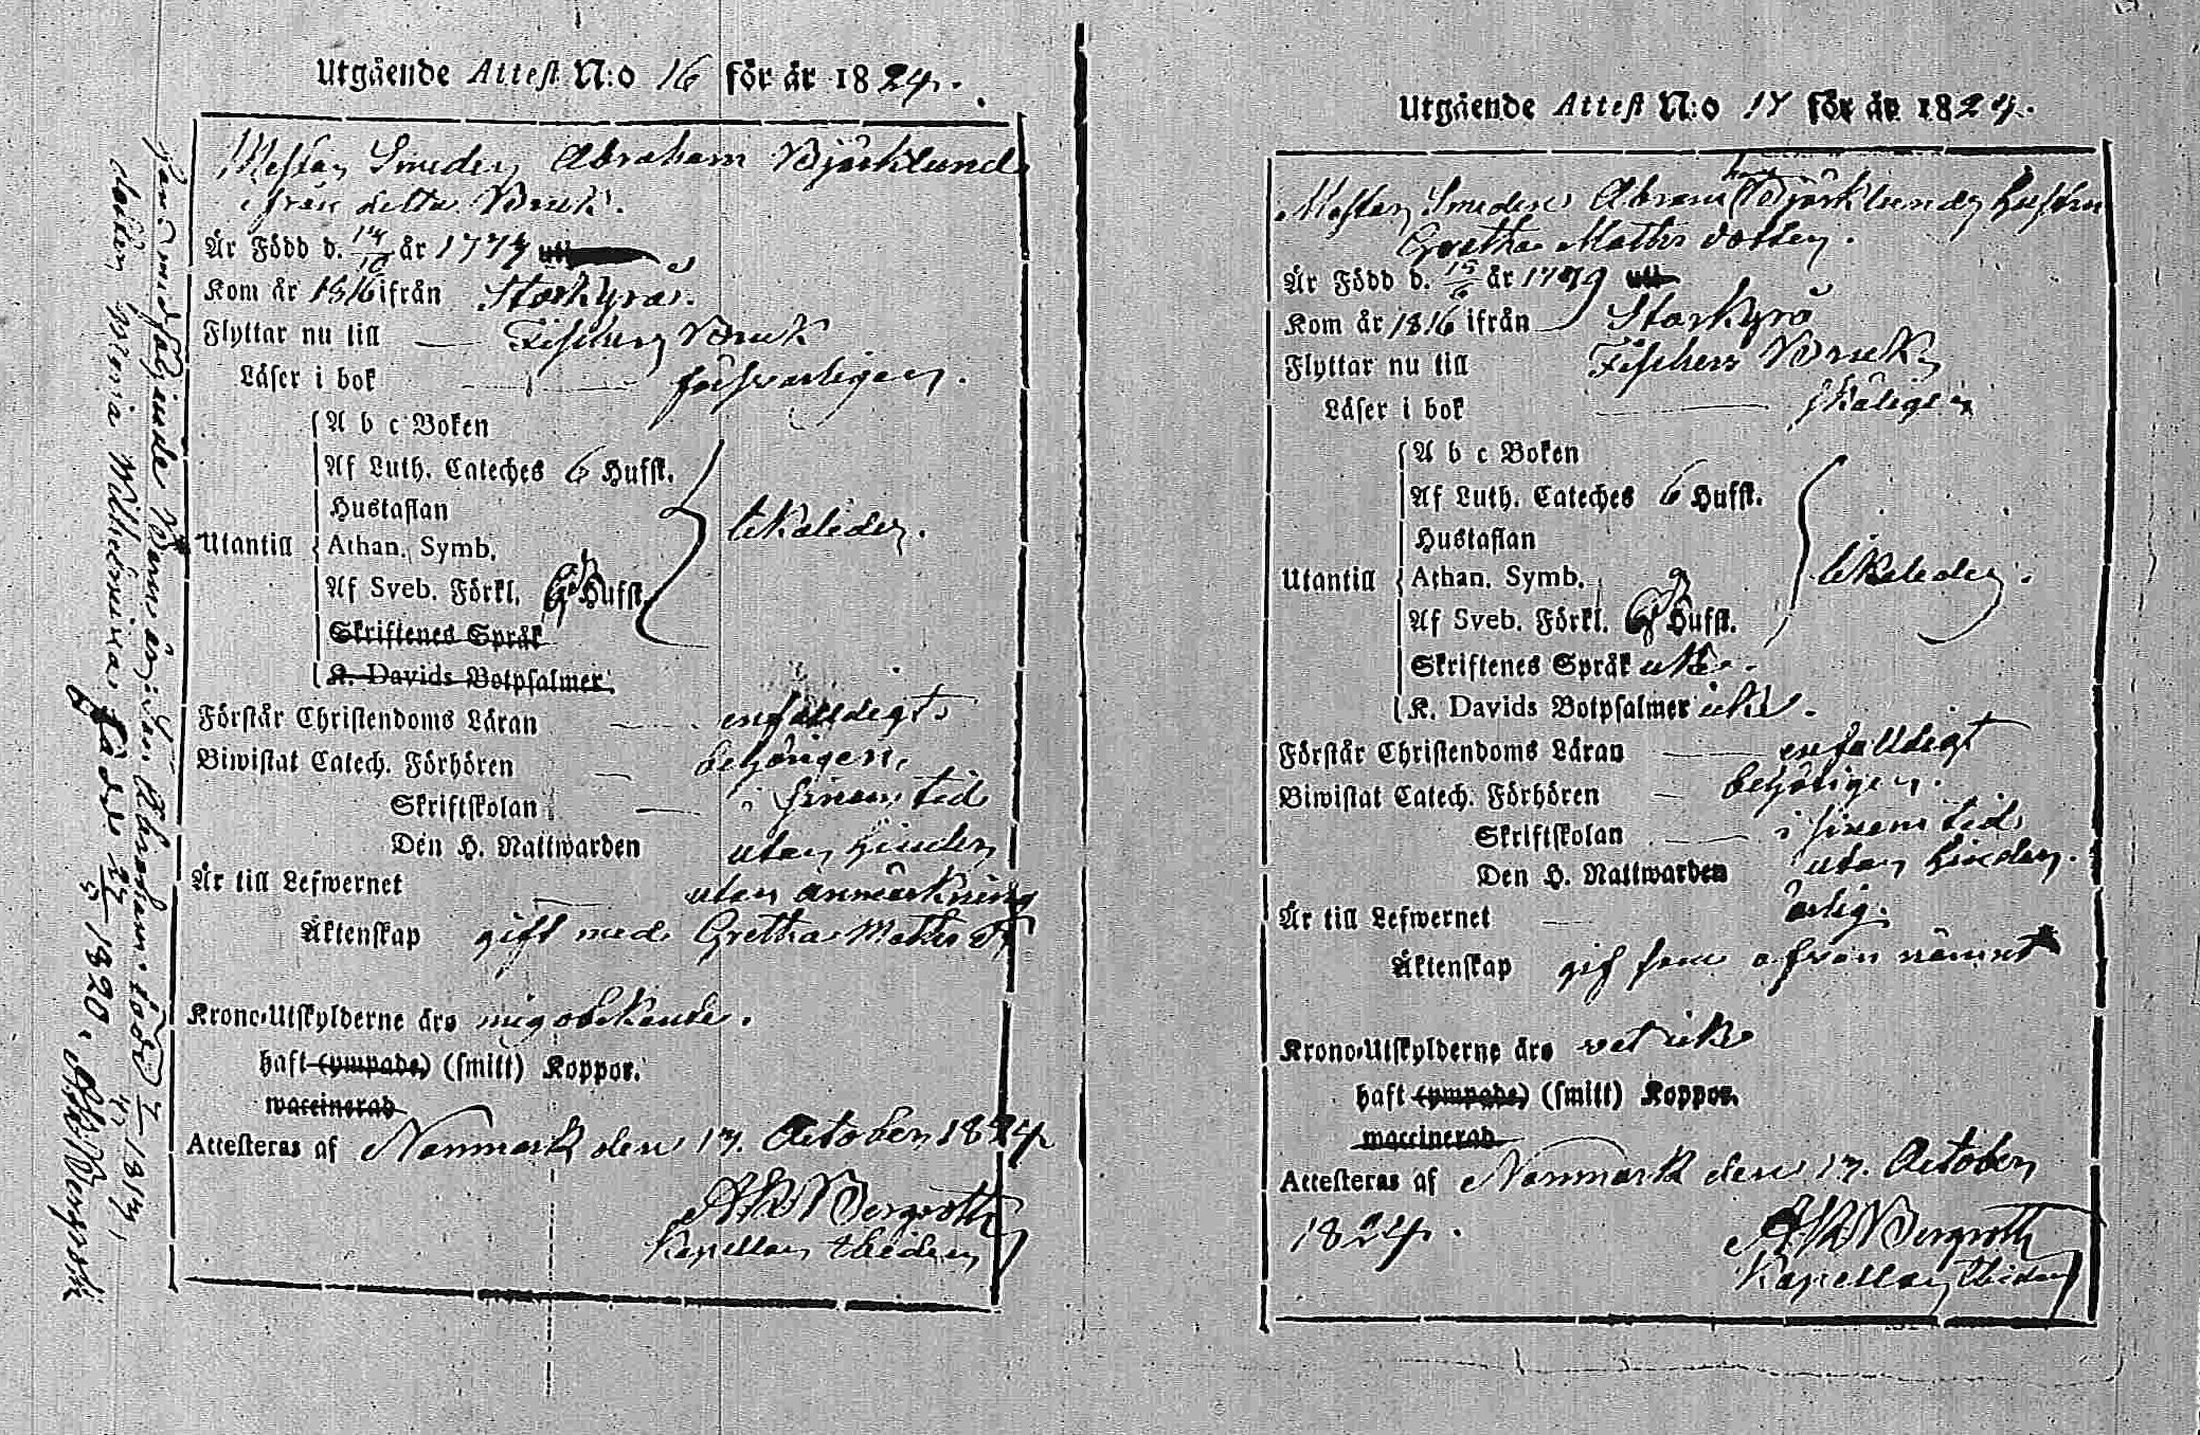 Utgående Attest N:o 16 för år 1824.
Mästar Smeden Abraham Björklund
ifrån detta Bruk.
Är Född d. 14/10 år 1774
Kom år 1816 ifrån Storkyrå.
Flyttar nu till Fiskars Bruk
Läser i bok försvarligen.
A b c Boken
Af Luth. Cateches 6 Hufst.
Hustaflan
Utantill Athan. Symb. likaledes.
Af Sveb. Förkl. Hufst.
Skriftenes Språk
K. Davids Botpsalmer
Förstår Christendoms Läran enfaldigt
Biwistat Catech. Förhören behörigen.
Skriftskolan i sinom tid
Den H. Nattwarden utan hinder
Är till Lefwernet utan anmärkning
Äktenskap gift med Gretha Matts dr
Krono-Utskylderne äro mig obekante.
haft (ympade) (smitt) Koppor.
waccinerad
Attesteras af Norrmark den 17. October 1824
Bergroth
Kapellan
Har medföljande Barn: Abraham född 1817,
dotter Maria Wilhelmina född 1820. Bergroth
Utgående Attest N:o 17 för år 1824.
Mästar Smeden Abram Björklunds hustru
Gretha Matts dotter.
Är Född d. 15/6 år 1779
Kom år 1816 ifrån Storkyrå
Flyttar nu till Fiskars Bruk
Läser i bok skäligen
A b c Boken
Af Luth. Cateches 6 Hufst.
Hustaflan
Utantill Athan. Symb. likaledes.
Af Sveb. Förkl. Hufst.
Skriftenes Språk icke.
K. Davids Botpsalmer icke.
Förstår Christendoms Läran enfaldigt
Biwistat Catech. Förhören behörigen.
Skriftskolan i sinom tid
Den H. Nattwarden utan hinder.
Är till Lefwernet ärlig.
Äktenskap gift som ofvan nämnt
Krono-Utskylderne äro vet icke
haft (ympade) (smitt) Koppor.
waccinerad
Attesteras af Norrmark den 17. October
1824. Bergroth
Kapellan